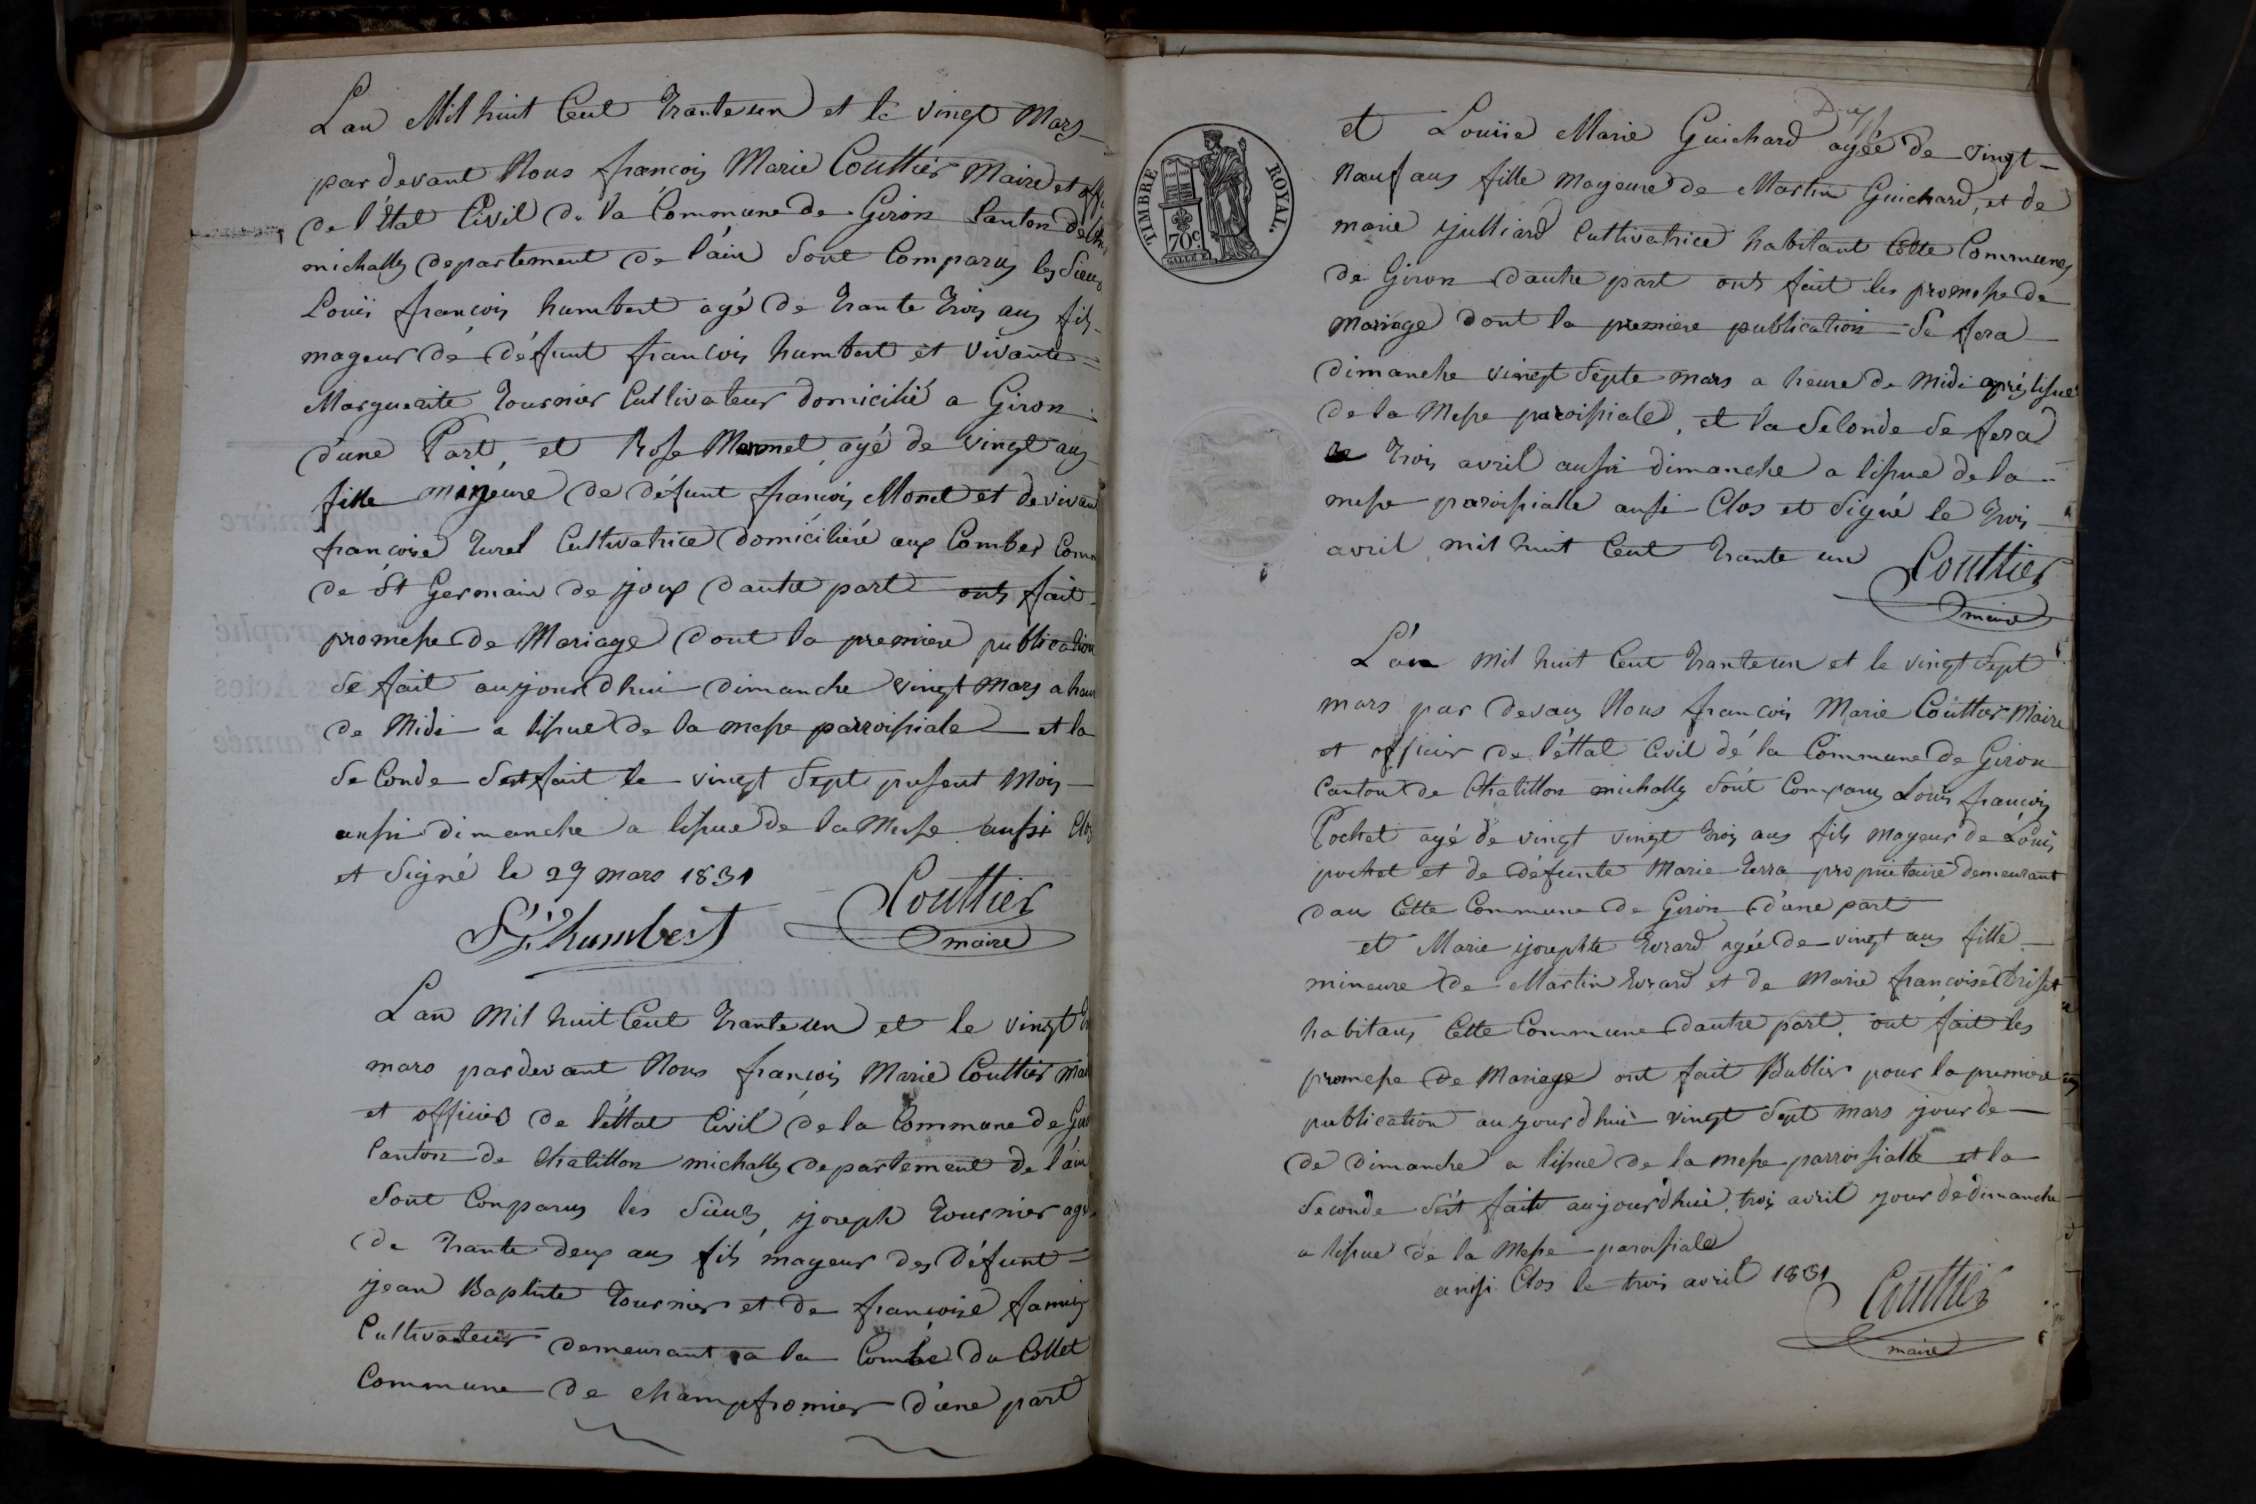 Lan Mil huit Cent trante un et le vingt Mars
par devant Nous françois Marie Couttier Maire et off
de l'état Civil de la Commune de Giron Canton de
michally departement de l'ain Sont Comparus les Sieurs
Louis françois humbert agé de trante trois ans fils
mageur de défunt françois humbert et vivante
Marguerite tournier Cultivateur domicilié a Giron
d'une Part, et Rose Mermet agé de vingt ans
fille mineure de défunt françois Monet et de vivan
francoise turel Cultivatrice domiciliéé aux Combes Comm
de St Germain de joux dautre part onts fait
promesse de Mariage dont la premiere publication
se fait aujourdhui dimanche vingt Mars a heur
de Midi a lissue de la messe parroissiale et la
Seconde Sest fait le vingt Sept present Mois
aussi dimanche a lissue de la Messe aussi Clos
et Signé le 27 mars 1831
humbert
Couttier
maire
Lan Mil huit Cent trante un et le vingt
mars pardevant Nous françois Marie Couttier mai
et officier de l'éttat Civil de la Commune de Giro
Canton de Chatillon michally departement de l'ain
Sont Comparus les Sieurs joseph tournier agé
de trante deux ans fils mageur des défunt
jean Baptiste tournier et de francoise famy
Cultivateur demeurant a la Combe du Collet
Commune de champfromier d'une part
TIMBRE ROYAL.
70c
et Louise Marie Guichard agéé de vingt
Neuf ans fille mageure de Martin Guichard, et de
marie julliard Cultivatrice habitant Cette Commune
de Giron dautre part onts fait les promesse de
Mariage dont la premiere publication Se fera
dimanche vinegt Septe mars a heure de Midi aprés lissue
de la Messe paroissiale, et la Seconde Se fera
trois avril aussi dimanche a lissue de la
messe paroissialle aussi Clos et Signé le trois
avril mil huit Cent trante un
Couttier
maire
L'an mil huit Cent trante un et le vingt Sept
mars par devans Nous francois Marie Couttier Maire
et officier de l'éttat Civil de la Commune de Giron
Canton de Chatillon michally Sont Comparus Louis francois
Pochet agé de vingt vingt trois ans fils mageur de Louis
pochet et de défunte Marie terra propriétaire demeurant
dans Cette Commune de Giron d'une part
et Marie josephte Evrard agéé de vingt ans fille
mineure de Martin Evrard et de Marie francoise
habitans Cette Commune dautre part. ont fait les
promesse de Mariage ont fait Publier pour la premiere
publication aujourdhui vingt Sept mars jour de
de dimanche a lissue de la messe parroissialle et la
Seconde Sest faite aujourdhui trois avril jour de dimanche
a lissue de la Messe paroissiale
ausi Clos le trois avril 1831
Couttier
maire